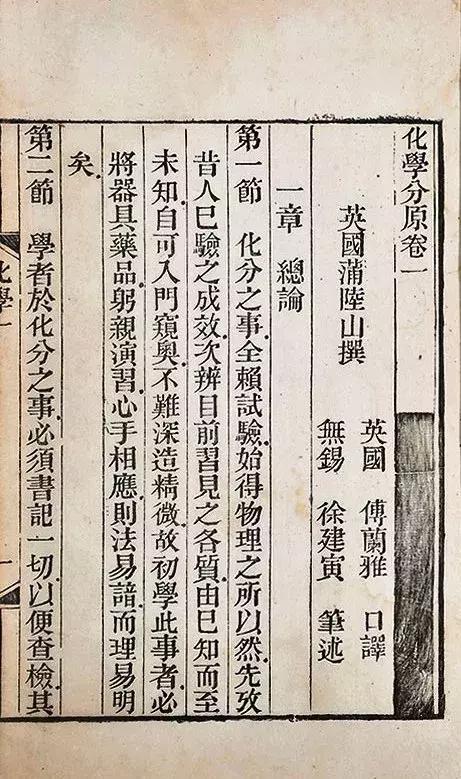 化學分原卷一
英國蒲陸山撰
英國 傅蘭雅 口譯
無錫 徐建寅 筆述
一章 總論
第一節 化分之事全賴試驗始得物理之所以然先攷
昔人已驗之成效次辨目前習見之各質由已知而至
未知自可入門窺奧不難深造精微故初學此事者必
將器具藥品躬親演習心手相應則法易諳而理易明
矣
第二節 學者於化分之事必須書記一切以便查檢其
化學一
一